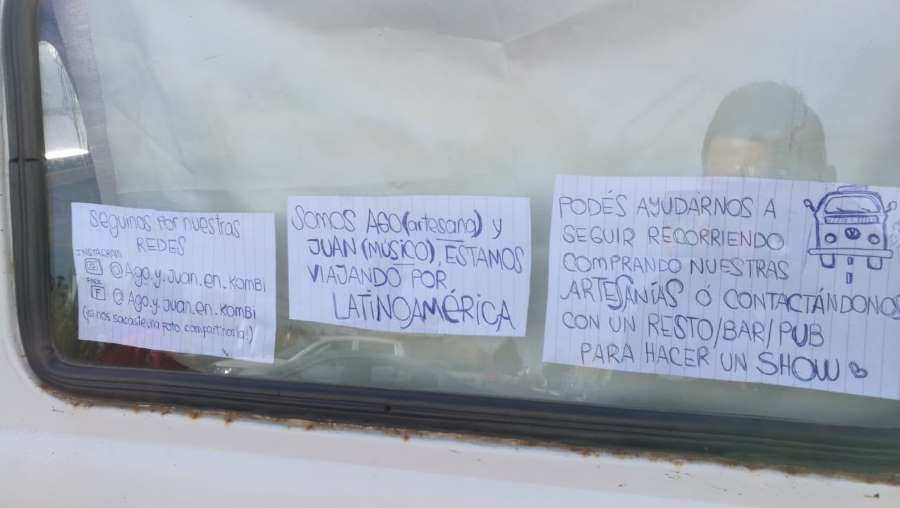 Seguinos por nuestras
REDES
INSTAGRAM
@Ago.y.Juan.en.kombi
@Ago.y.Juan.en.kombi
(si nos sacaste una foto, compartinosla:)
SOMOS AGO (artesana) y
JUAN (MÚSICO), ESTAMOS
VIAJANDO POR
LATINOAMÉRICA
PODÉS AYUDARNOS A
SEGUIR RECORRIENDO
COMPRANDO NUESTRAS
ARTESANÍAS Ó CONTACTÁNDONOS
CON UN RESTO/BAR/PUB
PARA HACER UN SHOW